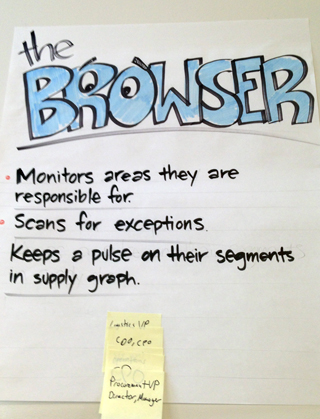 the
BROWSER
• Monitors areas they are
responsible for.
• Scans for exceptions.
Keeps a pulse on their segments
in supply graph.
VP
COO, CPO
Procurement VP
Director, Manager